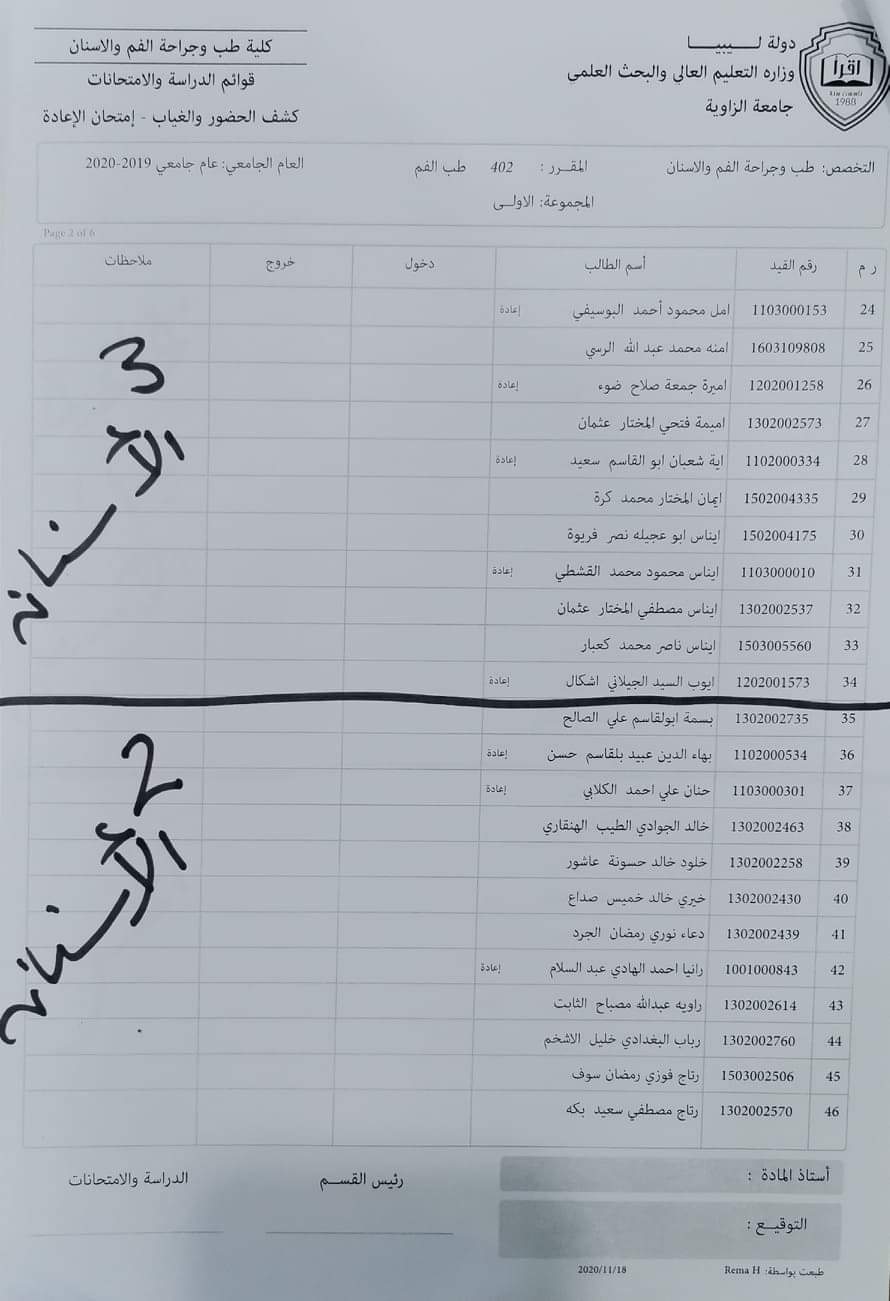 دولة لـــيبيـــا
وزاره التعليم العالي والبحث العلمي
جامعة الزاوية
اقرأ
1988
كلية طب وجراحة الفم والاسنان
قوائم الدراسة والامتحانات
كشف الحضور والغياب - إمتحان الإعادة
التخصص: طب وجراحة الفم والاسنان المقـرر : 402 طب الفم العام الجامعي: عام جامعي 2019-2020
المجموعة: الاولـى
Page 2 of 6
ر م رقم القيد أسم الطالب دخول خروج ملاحظات
24 1103000153 امل محمود أحمد البوسيفي إعادة
25 1603109808 امنه محمد عبد الله الرسي
26 1202001258 اميرة جمعة صلاح ضوء إعادة
27 1302002573 اميمة فتحي المختار عثمان
28 1102000334 اية شعبان ابو القاسم سعيد إعادة
29 1502004335 ايمان المختار محمد كرة
30 1502004175 ايناس ابو عجيله نصر فريوة
31 1103000010 ايناس محمود محمد القشطي إعادة
32 1302002537 ايناس مصطفي المختار عثمان
33 1503005560 ايناس ناصر محمد كعبار
34 1202001573 ايوب السيد الجيلاني اشكال إعادة
3
35 1302002735 بسمة ابولقاسم علي الصالح
36 1102000534 بهاء الدين عبيد بلقاسم حسن إعادة
37 1103000301 حنان علي احمد الكلابي إعادة
38 1302002463 خالد الجوادي الطيب الهنقاري
39 1302002258 خلود خالد حسونة عاشور
40 1302002430 خيري خالد خميس صداع
41 1302002439 دعاء نوري رمضان الجرد
42 1001000843 رانيا احمد الهادي عبد السلام إعادة
43 1302002614 راويه عبدالله مصباح الثابت
44 1302002760 رباب البغدادي خليل الاشخم
45 1503002506 رتاج فوزي رمضان سوف
46 1302002570 رتاج مصطفي سعيد بكه
2
أستاذ المادة : رئيس القســم الدراسة والامتحانات
التوقيــع :
طبعت بواسطة: Rema H 2020/11/18